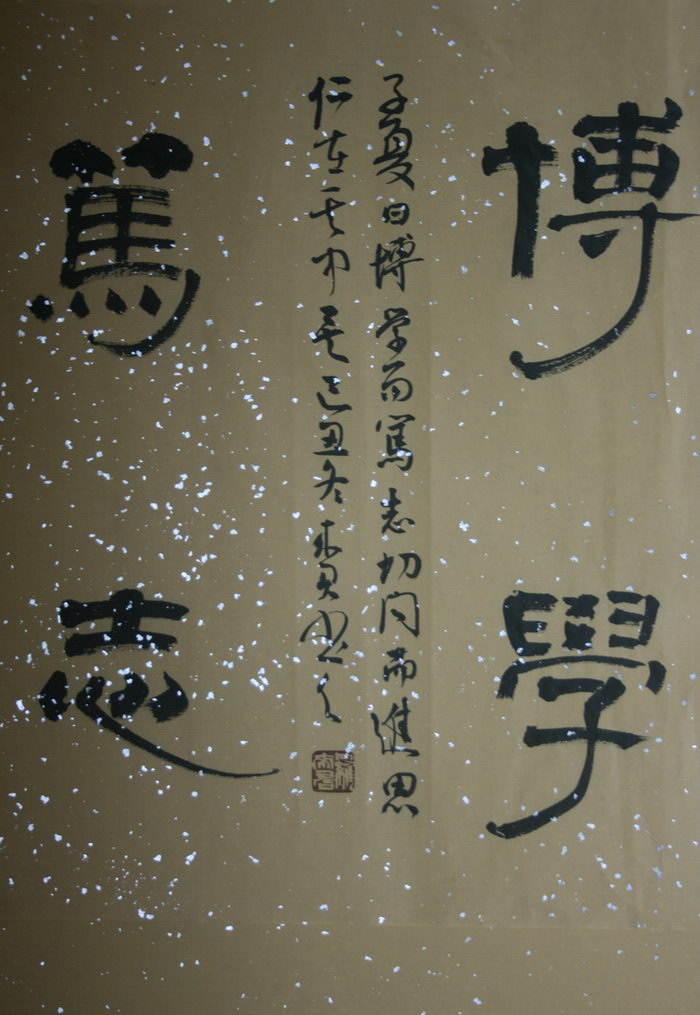 博學
子夏曰博学而篤志切问而進思
仁在其中矣己丑冬
篤志